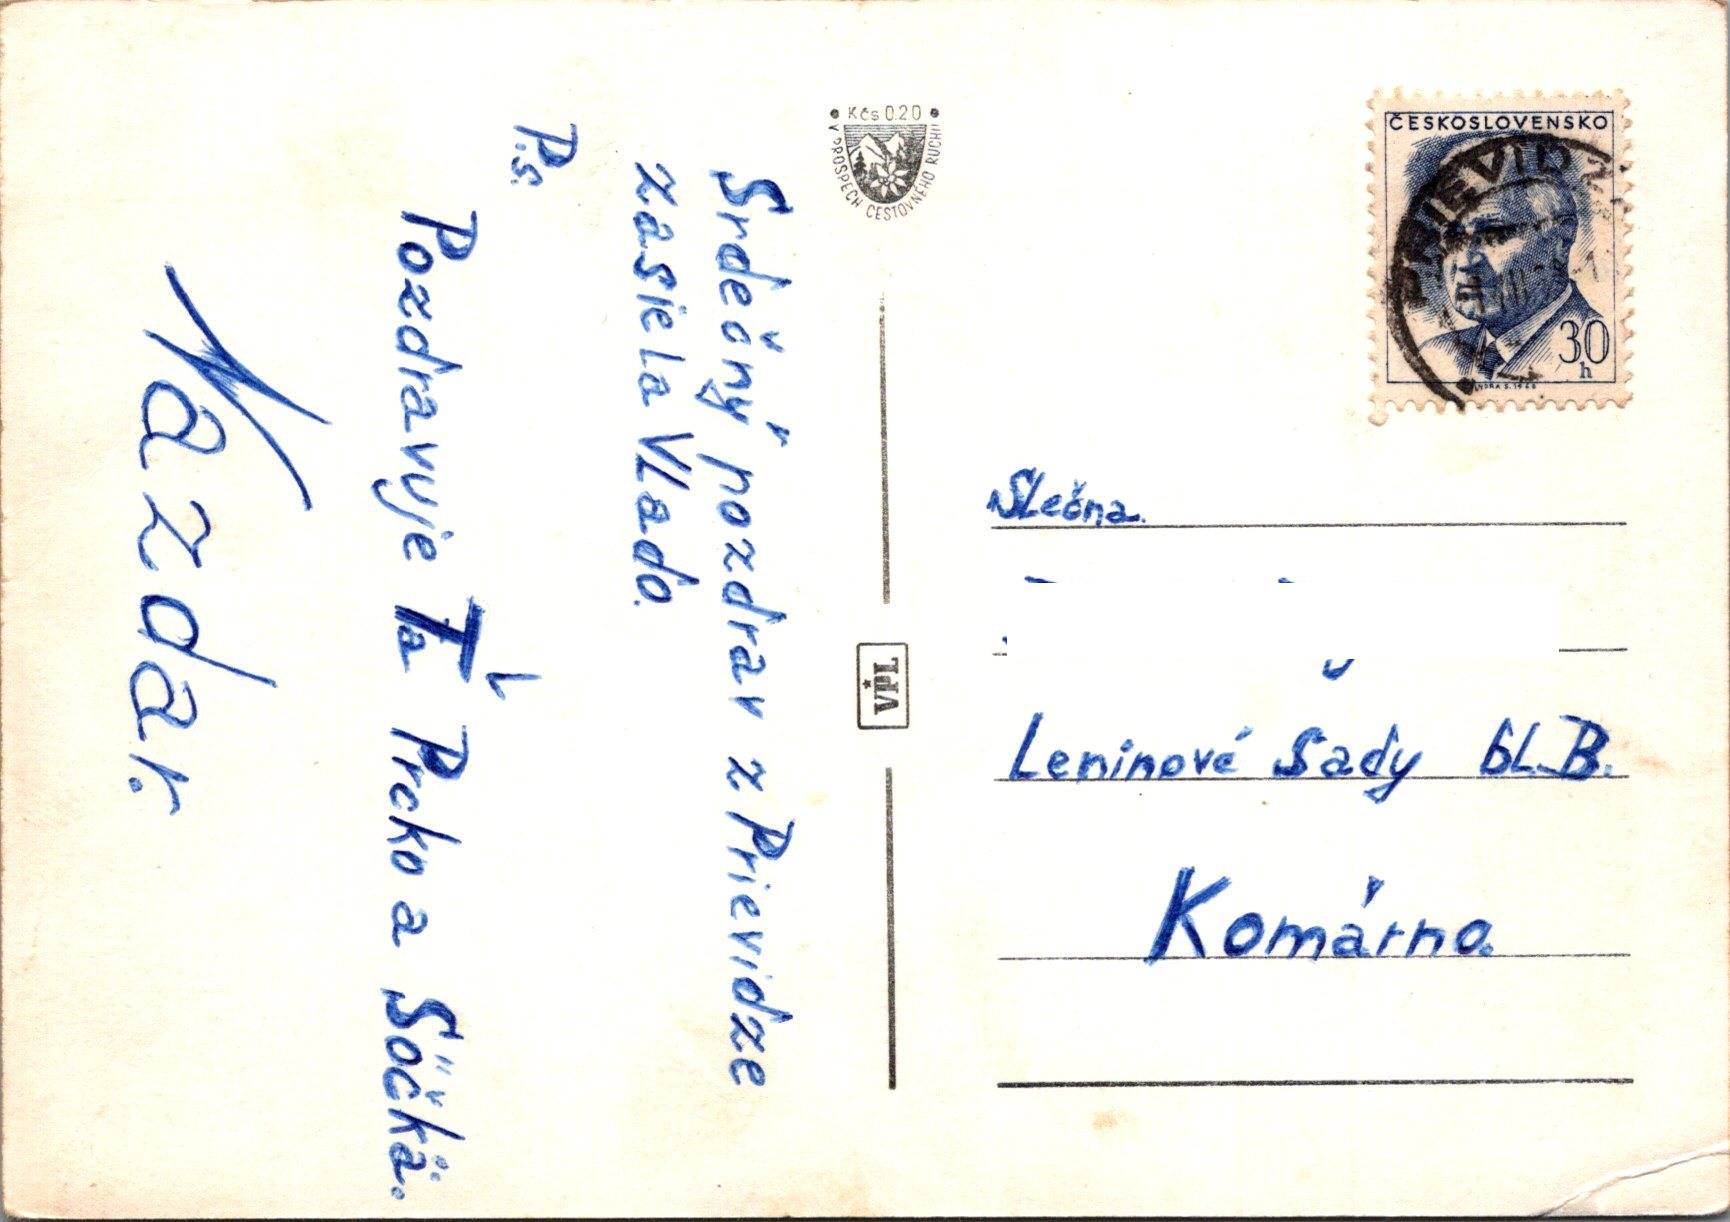 Kčs 0.20
V PROSPECH CESTOVNÉHO RUCHU
Srdečný pozdrav z Prievidze
zasiela Vlado.
P.s.
Pozdravuje Ťa Prcko a Söčkä.
Nazdar.
ČESKOSLOVENSKO
PRIEVIDZ
30
h
Slečna.
Leninové Sady bl. B.
Komárno.